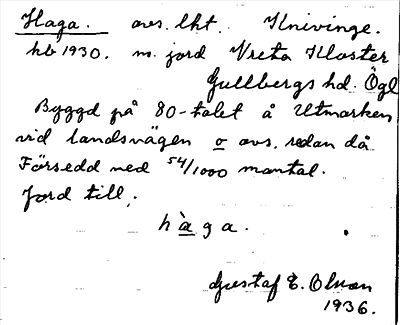 Haga. avs. lht. Knivinge.
hb 1930. m. jord Vreta Kloster
Gullbergs hd. Ögl
Byggd på 80-talet å Utmarken
vid landsvägen o avs. redan då
Försedd med 54/1000 mantal.
Jord till.
hàga.
Gustaf E. Olson
1936.